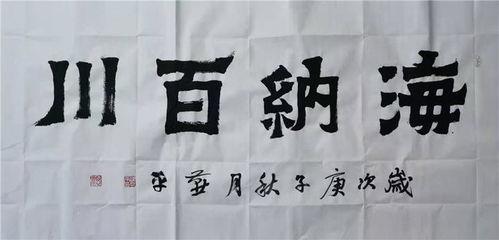 海納百川
歲次庚子秋月華平